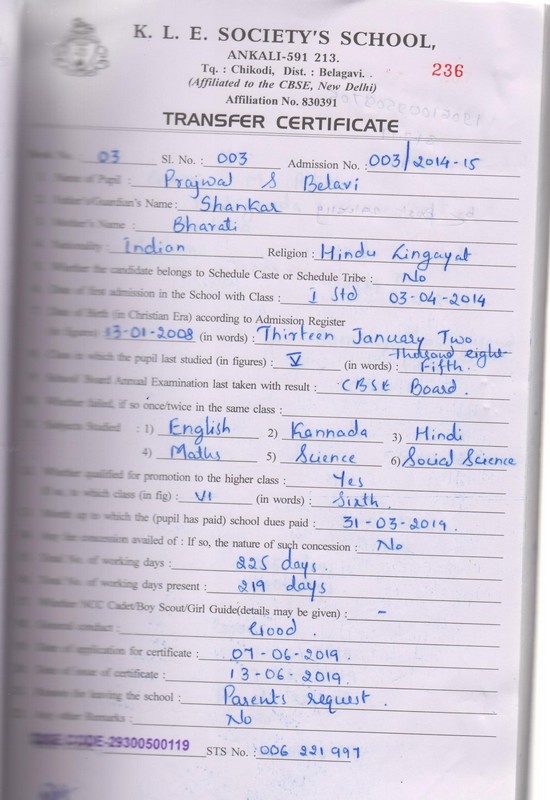 K. L. E. SOCIETY'S SCHOOL,
ANKALI-591 213.
Tq. : Chikodi, Dist. : Belagavi.
236
(Affiliated to the CBSE, New Delhi)
Affiliation No. 830391
TRANSFER CERTIFICATE
No. : 03 Sl. No. : 003 Admission No. : 003/2014-15
Name of Pupil : Prajwal S Belavi
Father's/Guardian's Name : Shankar
Mother's Name : Bharati
Nationality : Indian Religion : Hindu Lingayat
Whether the candidate belongs to Schedule Caste or Schedule Tribe : No
Date of first admission in the School with Class : I Std 03-04-2014
Date of Birth (in Christian Era) according to Admission Register
(in figures) 13-01-2008 (in words) : Thirteen January Two
Thousand eight
Class in which the pupil last studied (in figures) : V (in words) : Fifth.
School/Board Annual Examination last taken with result : CBSE Board.
Whether failed, if so once/twice in the same class :
Subjects Studied : 1) English 2) Kannada 3) Hindi
4) Maths 5) Science 6) Social Science
Whether qualified for promotion to the higher class : Yes
If so, in which class (in fig) : VI (in words) : Sixth.
Month up to which the (pupil has paid) school dues paid : 31-03-2019.
Any fee concession availed of : If so, the nature of such concession : No
Total No. of working days : 225 days.
Total No. of working days present : 219 days
Whether NCC Cadet/Boy Scout/Girl Guide(details may be given) : -
General conduct : Good.
Date of application for certificate : 07-06-2019.
Date of issue of certificate : 13-06-2019.
Reason for leaving the school : Parents request.
Any other Remarks : No
DISE CODE-29300500119
STS No. : 006 221 997